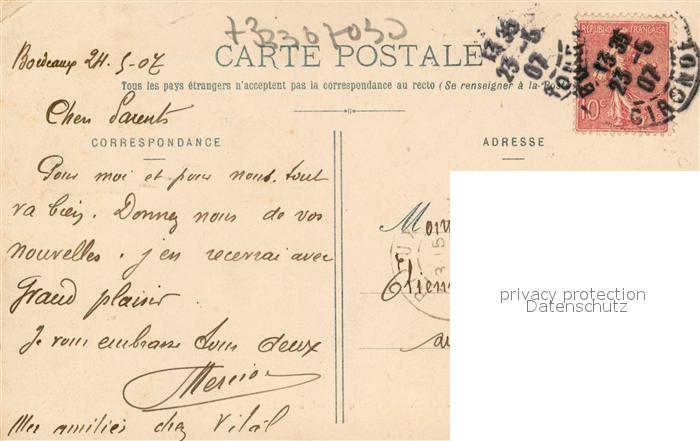 73 2367050
Bordeaux 24-5-07
CARTE POSTALE
Tous les pays étrangers n'acceptent pas la correspondance au recto (Se renseigner à la Poste)
RÉPUBLIQUE FRANÇAISE
10c
13 35
23 -5
07
GIRONDE
Chers Parents
CORRESPONDANCE
ADRESSE
Pour moi et pour nous tout
va bien. Donnez nous de vos
nouvelles. j'en recevrai avec
Grand plaisir.
Je vous embrasse tous deux
Mes amitiés chez Vital
privacy protection
Datenschutz